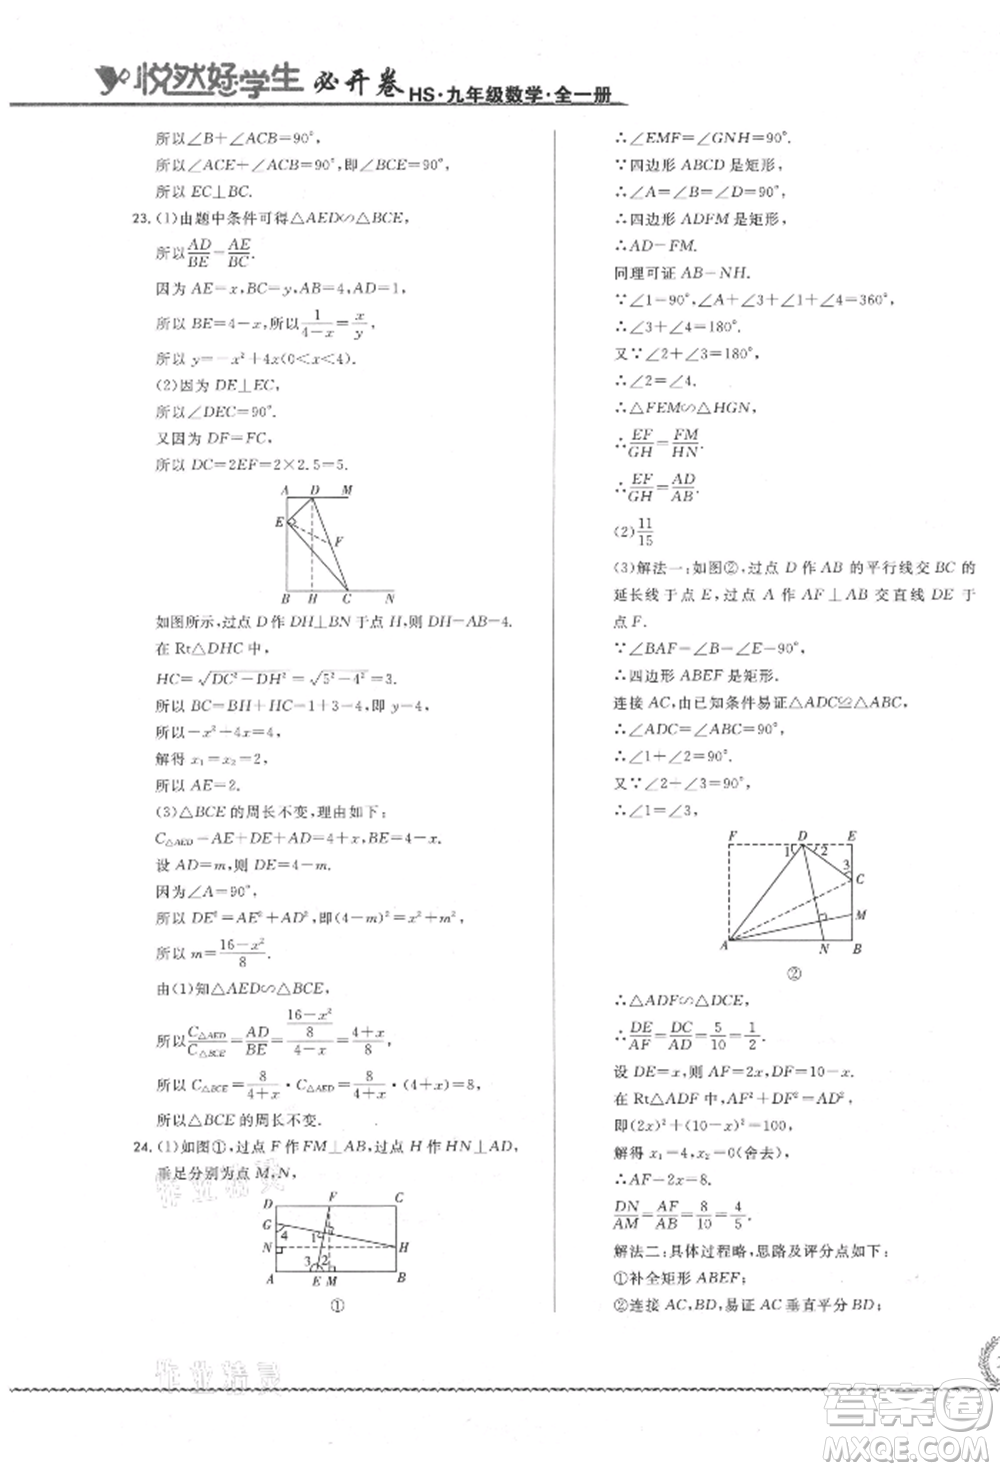 悦然好学生 必开卷 HS·九年级数学·全一册
所以∠B+∠ACB=90°,
所以∠ACE+∠ACB=90°,即∠BCE=90°,
所以 EC⊥BC.
23. (1)由题中条件可得△AED∽△BCE,
所以AD/BE=AE/BC.
因为 AE=x,BC=y,AB=4,AD=1,
所以 BE=4-x,所以1/(4-x)=x/y,
所以 y=-x²+4x(0<x<4).
(2)因为 DE⊥EC,
所以∠DEC=90°.
又因为 DF=FC,
所以 DC=2EF=2×2.5=5.
A D M
E
F
B H C N
如图所示,过点 D 作 DH⊥BN于点 H,则 DH=AB=4.
在 Rt△DHC 中,
HC=√(DC²-DH²)=√(5²-4²)=3.
所以 BC=BH+HC=1+3=4,即 y=4,
所以-x²+4x=4,
解得 x₁=x₂=2,
所以 AE=2.
(3)△BCE 的周长不变,理由如下:
C△AED=AE+DE+AD=4+x,BE=4-x.
设 AD=m,则 DE=4-m.
因为∠A=90°,
所以 DE²=AE²+AD²,即(4-m)²=x²+m²,
所以 m=(16-x²)/8.
由(1)知△AED∽△BCE,
所以C△AED/C△BCE=AD/BE=((16-x²)/8)/(4-x)=(4+x)/8,
所以 C△BCE=8/(4+x)·C△AED=8/(4+x)·(4+x)=8,
所以△BCE 的周长不变.
24. (1)如图①,过点 F 作 FM⊥AB,过点 H 作 HN⊥AD,
垂足分别为点 M,N,
D F C
G
4 1
N H
3 2
A E M B
①
∴∠EMF=∠GNH=90°.
∵四边形 ABCD 是矩形,
∴∠A=∠B=∠D=90°,
∴四边形 ADFM 是矩形,
∴AD=FM.
同理可证 AB=NH.
∵∠1=90°,∠A+∠3+∠1+∠4=360°,
∴∠3+∠4=180°.
又∵∠2+∠3=180°,
∴∠2=∠4,
∴△FEM∽△HGN,
∴EF/GH=FM/HN,
∴EF/GH=AD/AB.
(2)11/15
(3)解法一:如图②,过点 D 作 AB 的平行线交 BC 的
延长线于点 E,过点 A 作 AF⊥AB 交直线 DE 于
点 F.
∵∠BAF=∠B=∠E=90°,
∴四边形 ABEF 是矩形.
连接 AC,由已知条件易证△ADC≌△ABC,
∴∠ADC=∠ABC=90°,
∴∠1+∠2=90°.
又∵∠2+∠3=90°,
∴∠1=∠3,
F D E
1 2
3
C
M
A N B
②
∴△ADF∽△DCE,
∴DE/AF=DC/AD=5/10=1/2.
设 DE=x,则 AF=2x,DF=10-x.
在 Rt△ADF 中,AF²+DF²=AD²,
即(2x)²+(10-x)²=100,
解得 x₁=4,x₂=0(舍去),
∴AF=2x=8.
∴DN/AM=AF/AB=8/10=4/5.
解法二:具体过程略,思路及评分点如下:
①补全矩形 ABEF;
②连接 AC,BD,易证 AC 垂直平分 BD;
作业精灵
作业精灵
答案圈
MXQE.COM